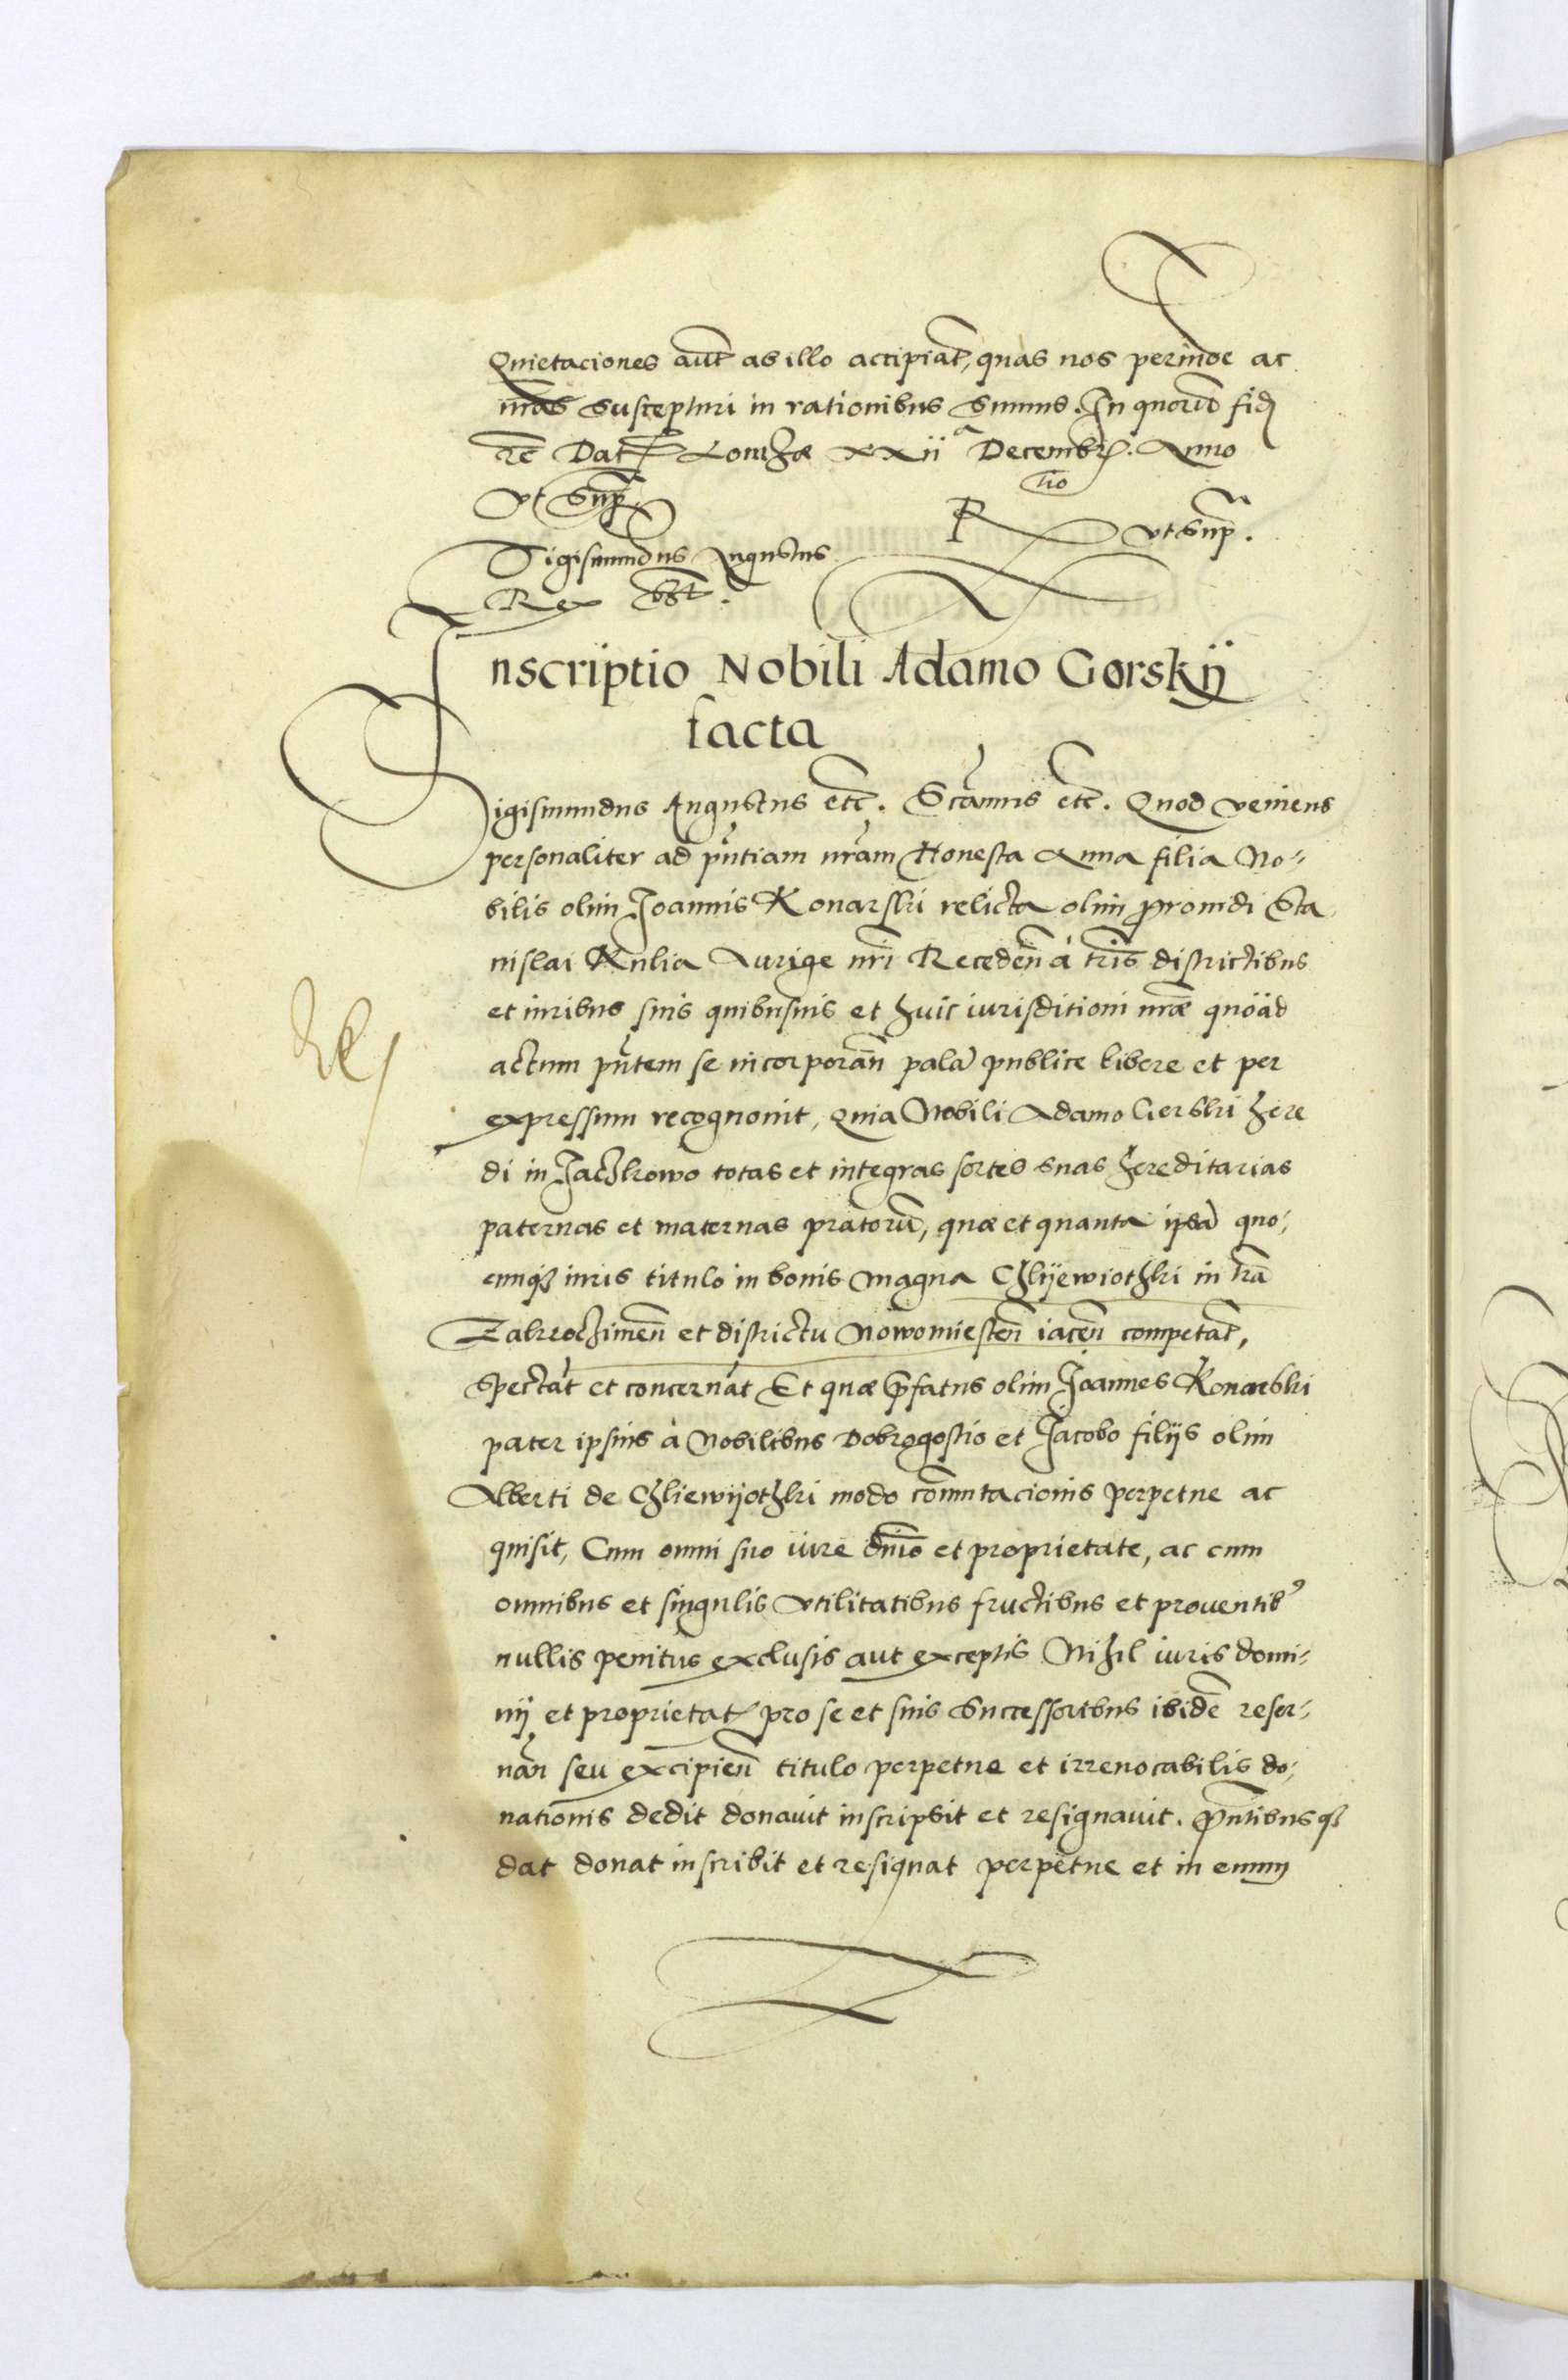 Quietaciones aut̄ ab illo accipiāt, quas nos perinde ac
nr̄as suscepturi in rationibus sumus. In quorū fidē
rc̄ Dat̄ Lomzæ xxiiᵃ Decembr̄. Anno
vt supr̄
R tio vt supr̄.
Sigismundus Augustus
Rex sst̄.
Inscriptio Nobili Adamo Gorskÿ
facta
Sigismundus Augustus etc̄. Sc̄amus etc̄. Quod veniens
personaliter ad pn̄tiam nr̄am Honesta Anna filia No-
bilis olim Joannis Konarski relicta olim prouidi Sta
nislai Kulia Aurige nr̄i Receden̄ à tr̄is districtibus
et iuribus suis quibusuis et huic iurisditioni nr̄æ quöad
actum pn̄tem se incorporan̄ palā publice libere et per
expressum recognouit, Quia Nobili Adamo Gorski here
di in Jaczkowo totas et integras sortes suas hereditarias
paternas et maternas pratorū, quæ et quanta ipsā quo-
cunqȝ iuris titulo in bonis magna Chlÿewiothki in tr̄a
Zakroczimen̄ et districtu Nowomiesten̄ iacen̄ competāt,
Spectāt et concernāt Et quæ p̄fatus olim Joannes Konarski
pater ipsius à Nobilibus Dobrogostio et Jacobo filijs olim
Alberti de Chliewÿothki modo com̄utacionis perpetue ac
quisit, Cum omni suo iure dn̄io et proprietate, ac cum
omnibus et singulis vtilitatibus fructibus et prouentibꝰ
nullis penitus exclusis aut exceptis Nihil iuris domi-
nij et proprietat̄ pro se et suis Successoribus ibidē reser-
uan̄ seu excipien̄ titulo perpetue et irreuocabilis do-
nationis dedit donauit inscripsit et resignauit. Pn̄tibusqȝ
dat donat inscribit et resignat perpetue et in euum